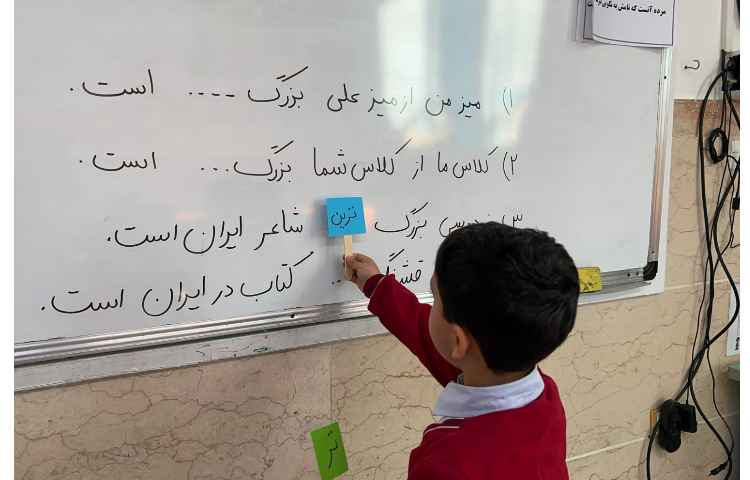 مرده آنست که نامش به نکویی نبرند
۱) میز من از میز علی بزرگ .... است.
۲) کلاس ما از کلاس شما بزرگ ... است.
۳) فردوسی بزرگ ترین شاعر ایران است.
قشنگ ... کتاب در ایران است.
تر